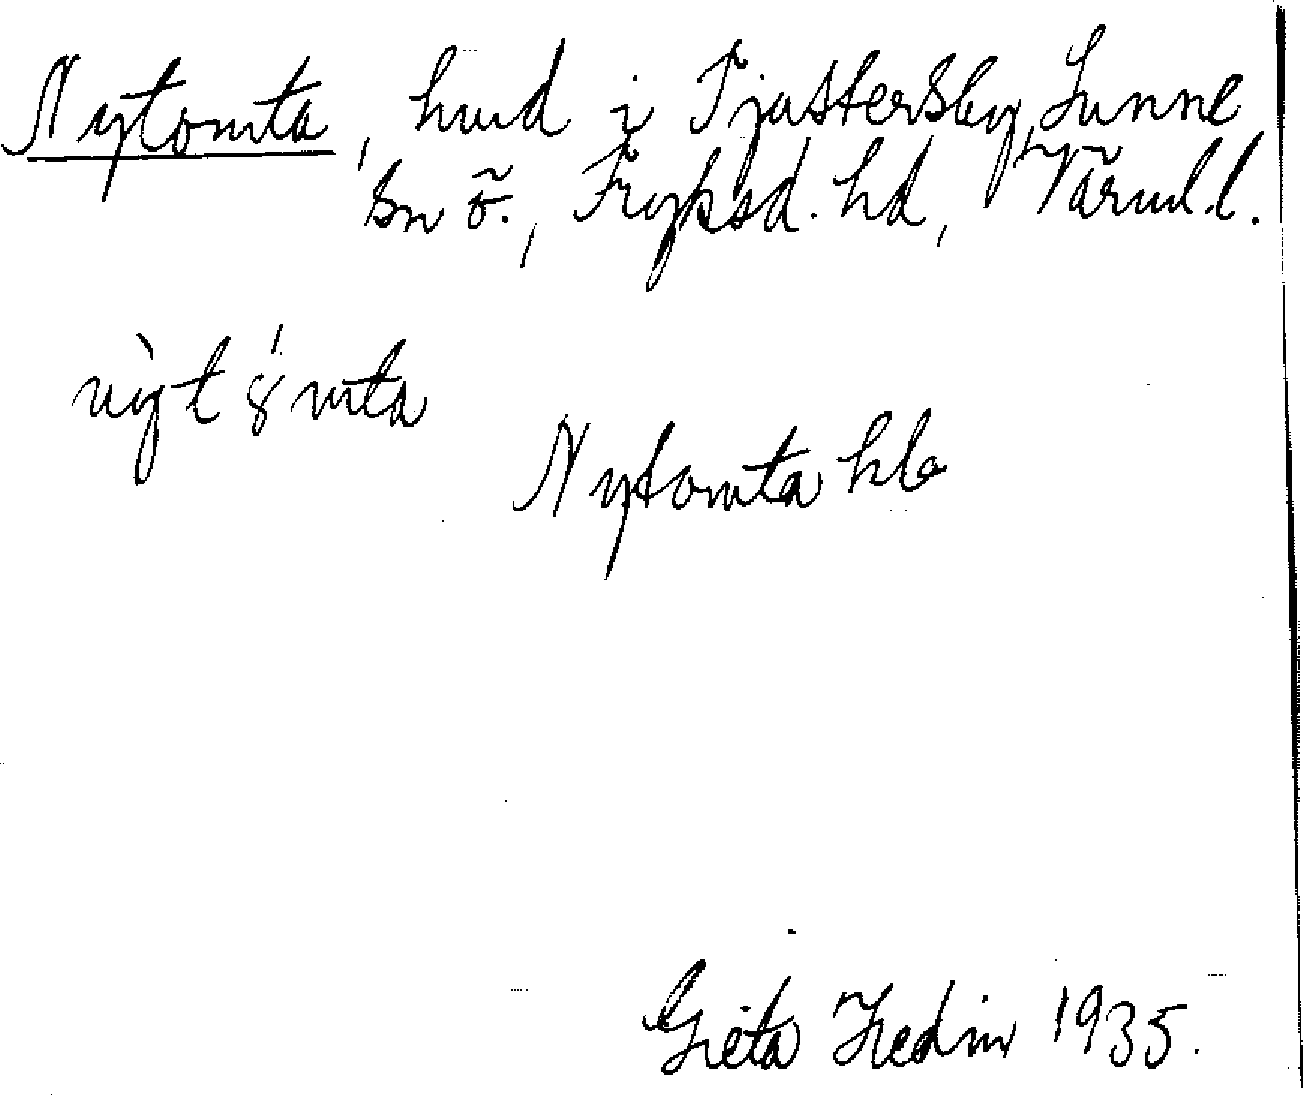 Nytomta, hmd i Tjustersby, Sunne
sn ö., Fryksd. hd, Värml.l.
nỳt ǿmta
Nytomta hla
Greta Hedin 1935.